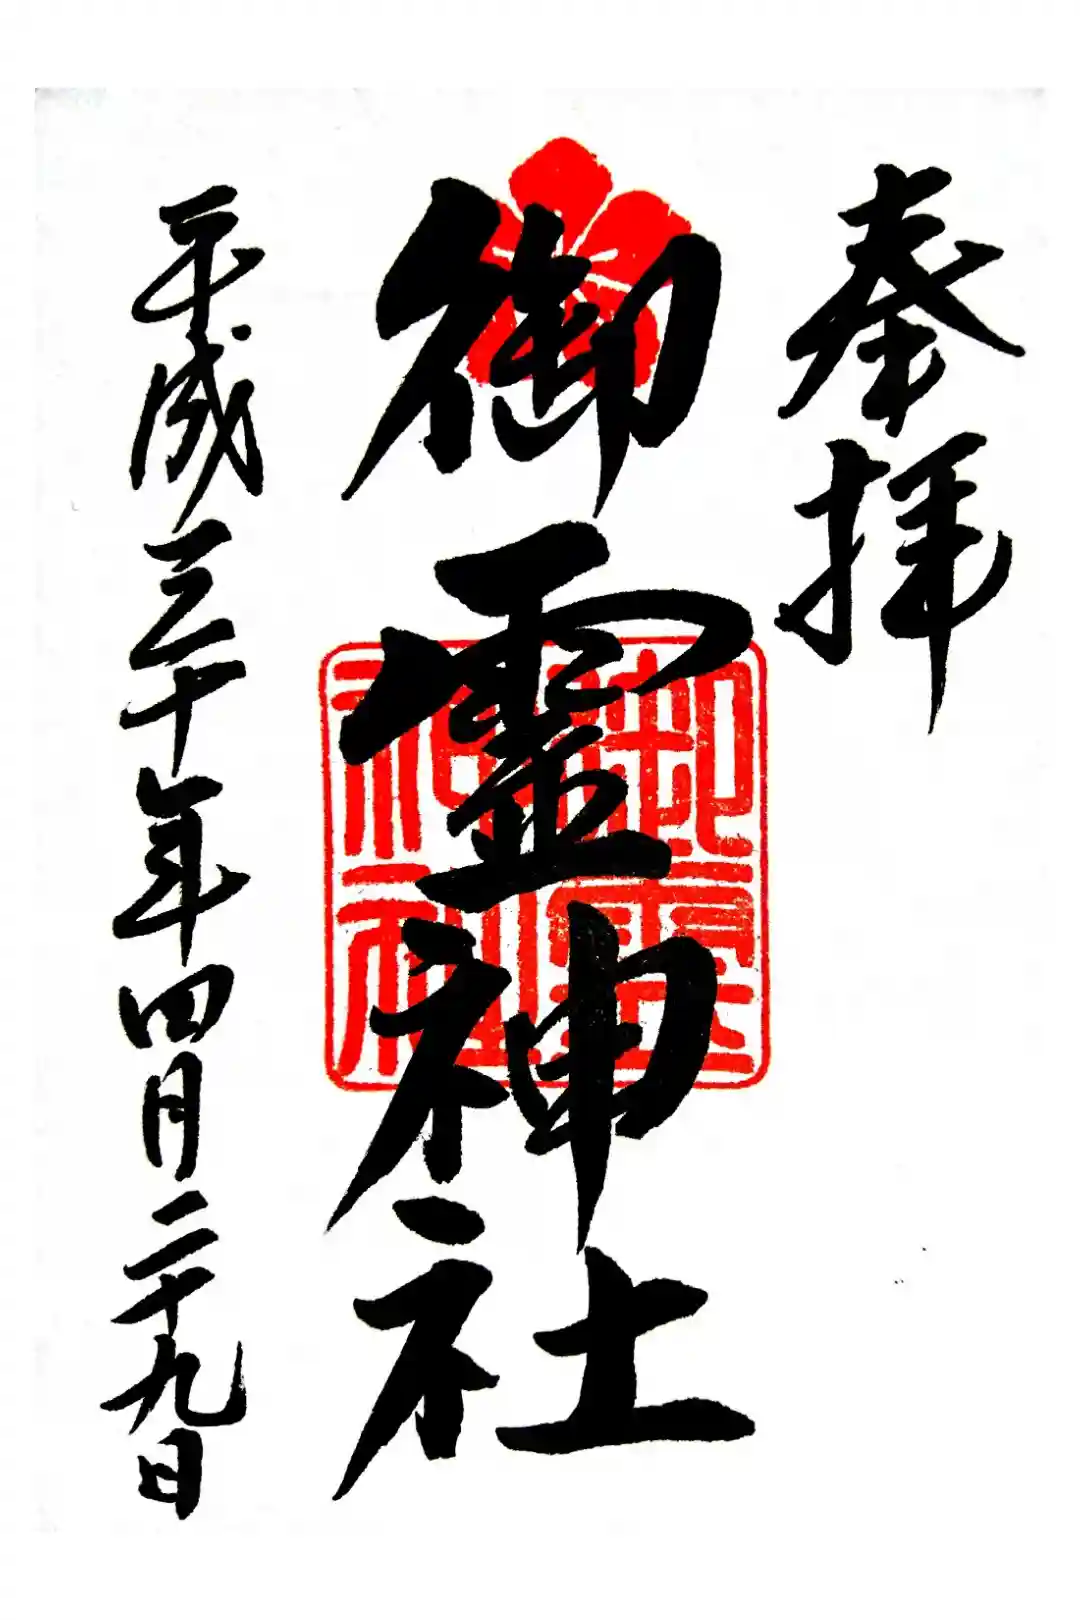 奉拝
御霊神社
御霊神社
平成三十年四月二十九日